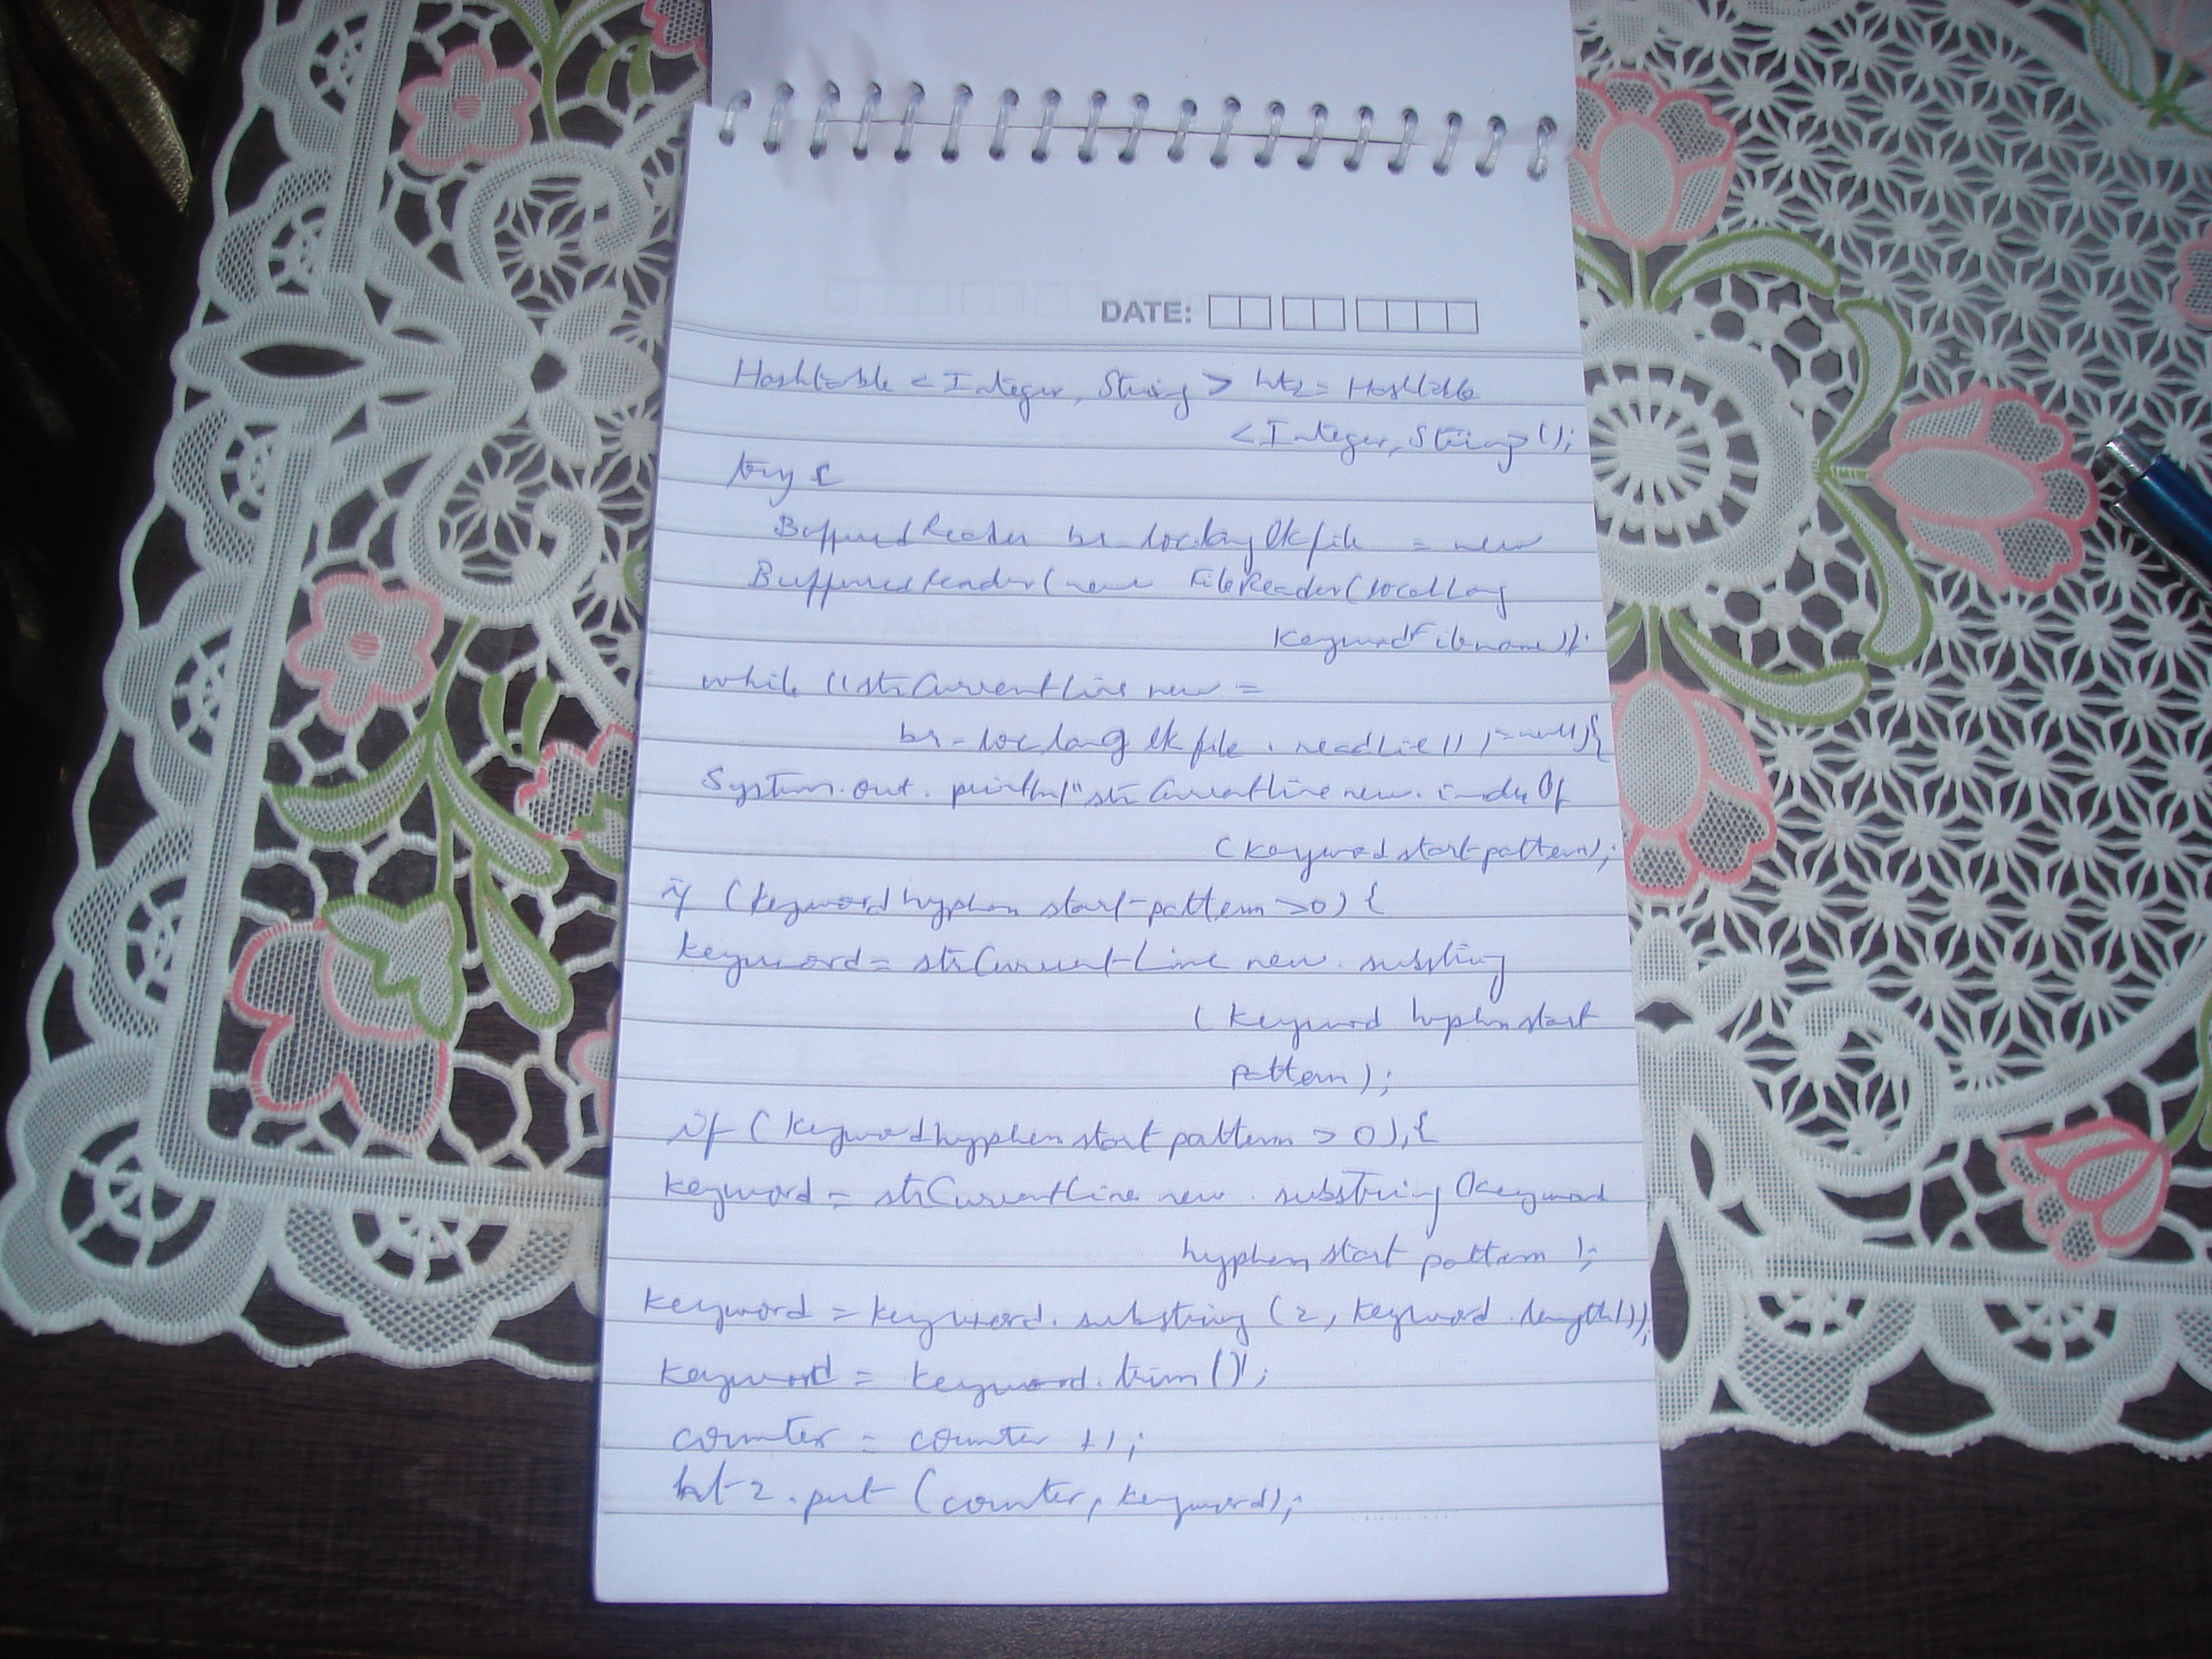 DATE:
Hashtable < Integer, String > ht2 = Hashtable
< Integer, String > ();
try {
BufferedReader br_loclanglkfile = new
BufferedReader(new FileReader(localLang
KeywordFilename));
while ((strCurrentLine new =
br_loclang lk file . readLine() ) != null) {
System.out. println("strCurrentLine new. indexOf
(keyword start pattern);
if (keyword hyphen start-pattern >0) {
keyword = strCurrentLine new. substring
( keyword hyphen start
pattern );
if (keyword hyphen start pattern > 0), {
keyword = strCurrentLine new . substring (keyword
hyphen start pattern );
keyword = keyword. substring (2, keyword . length());
keyword = keyword. trim ();
counter = counter ++;
ht2 . put (counter, keyword);